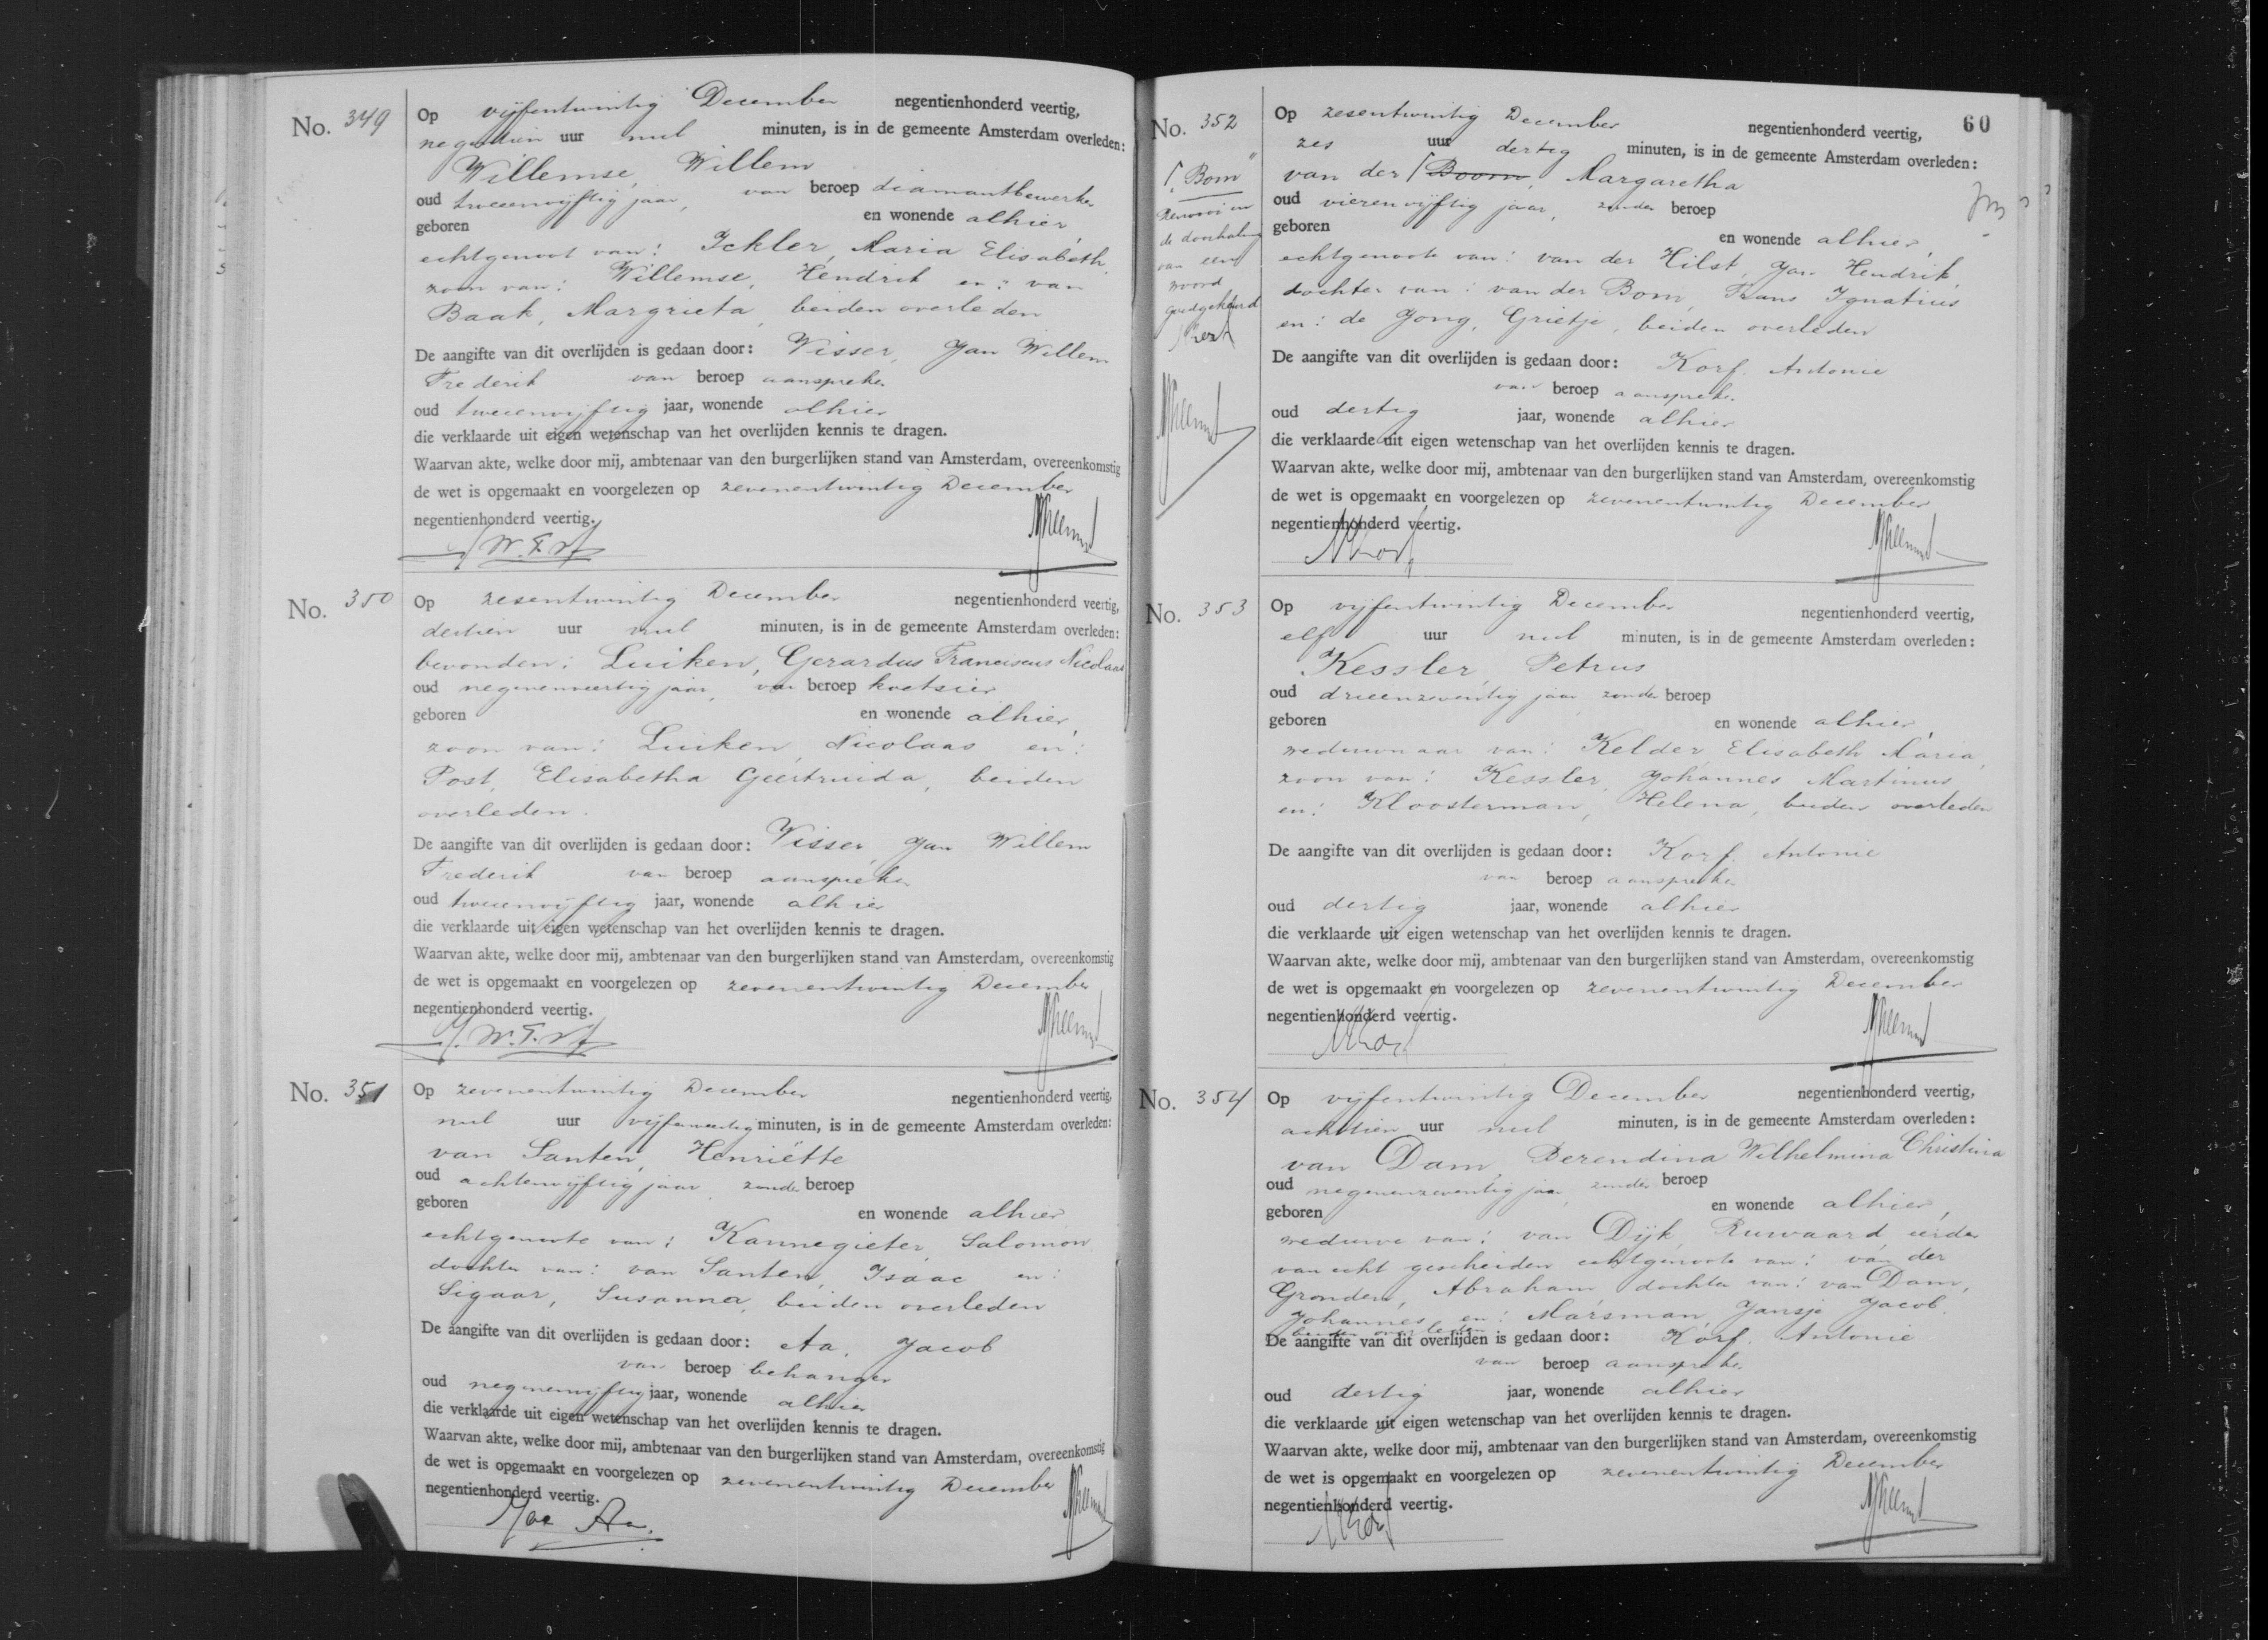 No. 349
Op vijfentwintig December negentienhonderd veertig,
negentien uur nul minuten, is in de gemeente Amsterdam overleden:
Willemse, Willem
oud tweeenvijftig jaar, van beroep diamantbewerker
geboren en wonende alhier,
echtgenoot van: Ickler, Maria Elisabeth,
zoon van: Willemse, Hendrik en: van
Baak, Margrieta, beiden overleden
De aangifte van dit overlijden is gedaan door: Visser, Jan Willem
Frederik van beroep aanspreker
oud tweeenvijftig jaar, wonende alhier
die verklaarde uit eigen wetenschap van het overlijden kennis te dragen.
Waarvan akte, welke door mij, ambtenaar van den burgerlijken stand van Amsterdam, overeenkomstig
de wet is opgemaakt en voorgelezen op zevenentwintig December
negentienhonderd veertig.
No. 350
Op zesentwintig December negentienhonderd veertig,
dertien uur nul minuten, is in de gemeente Amsterdam overleden:
bevonden: Luiken, Gerardus Franciscus Nicolaas
oud negenenveertig jaar, van beroep koetsier
geboren en wonende alhier,
zoon van: Luiken, Nicolaas en:
Post, Elisabetha Geertruida, beiden
overleden.
De aangifte van dit overlijden is gedaan door: Visser, Jan Willem
Frederik van beroep aanspreker
oud tweeenvijftig jaar, wonende alhier
die verklaarde uit eigen wetenschap van het overlijden kennis te dragen.
Waarvan akte, welke door mij, ambtenaar van den burgerlijken stand van Amsterdam, overeenkomstig
de wet is opgemaakt en voorgelezen op zevenentwintig December
negentienhonderd veertig.
No. 351
Op zevenentwintig December negentienhonderd veertig,
nul uur vijfenveertig minuten, is in de gemeente Amsterdam overleden:
van Santen, Henriëtte
oud achtenvijftig jaar, zonder beroep
geboren en wonende alhier
echtgenoote van: Kannegieter, Salomon
dochter van: van Santen, Isaac en:
Sigaar, Susanna, beiden overleden
De aangifte van dit overlijden is gedaan door: Aa, Jacob
van beroep behanger
oud negenenvijftig jaar, wonende alhier
die verklaarde uit eigen wetenschap van het overlijden kennis te dragen.
Waarvan akte, welke door mij, ambtenaar van den burgerlijken stand van Amsterdam, overeenkomstig
de wet is opgemaakt en voorgelezen op zevenentwintig December
negentienhonderd veertig.
Jac Aa.
60
No. 352
"Bom"
de doorhaling
van een
woord
goedgekeurd
Op zesentwintig December negentienhonderd veertig,
zes uur dertig minuten, is in de gemeente Amsterdam overleden:
van der Boom, Margaretha
oud vierenvijftig jaar, zonder beroep
geboren en wonende alhier,
echtgenoote van: van der Hilst, Jan Hendrik,
dochter van: van der Bom, Frans Ignatius
en: de Jong, Grietje, beiden overleden
De aangifte van dit overlijden is gedaan door: Korf, Antonie
van beroep aanspreker
oud dertig jaar, wonende alhier
die verklaarde uit eigen wetenschap van het overlijden kennis te dragen.
Waarvan akte, welke door mij, ambtenaar van den burgerlijken stand van Amsterdam, overeenkomstig
de wet is opgemaakt en voorgelezen op zevenentwintig December
negentienhonderd veertig.
No. 353
Op vijfentwintig December negentienhonderd veertig,
elf uur nul minuten, is in de gemeente Amsterdam overleden:
Kessler, Petrus
oud drieenzeventig jaar, zonder beroep
geboren en wonende alhier,
weduwnaar van: Kelder, Elisabeth Maria,
zoon van: Kessler, Johannes Martinus
en: Kloosterman, Helena, beiden overleden
De aangifte van dit overlijden is gedaan door: Korf, Antonie
van beroep aanspreker
oud dertig jaar, wonende alhier
die verklaarde uit eigen wetenschap van het overlijden kennis te dragen.
Waarvan akte, welke door mij, ambtenaar van den burgerlijken stand van Amsterdam, overeenkomstig
de wet is opgemaakt en voorgelezen op zevenentwintig December
negentienhonderd veertig.
No. 354
Op vijfentwintig December negentienhonderd veertig,
achttien uur nul minuten, is in de gemeente Amsterdam overleden:
van Dam, Berendina Wilhelmina Christina
oud negenenzeventig jaar, zonder beroep
geboren en wonende alhier,
weduwe van: van Dijk, Ruwaard eerder
van echt gescheiden echtgenoote van: van der
Gronden, Abraham, dochter van: van Dam,
Johannes en: Marsman, Jansje Jacob.
beiden overleden
De aangifte van dit overlijden is gedaan door: Korf, Antonie
van beroep aanspreker
oud dertig jaar, wonende alhier
die verklaarde uit eigen wetenschap van het overlijden kennis te dragen.
Waarvan akte, welke door mij, ambtenaar van den burgerlijken stand van Amsterdam, overeenkomstig
de wet is opgemaakt en voorgelezen op zevenentwintig December
negentienhonderd veertig.